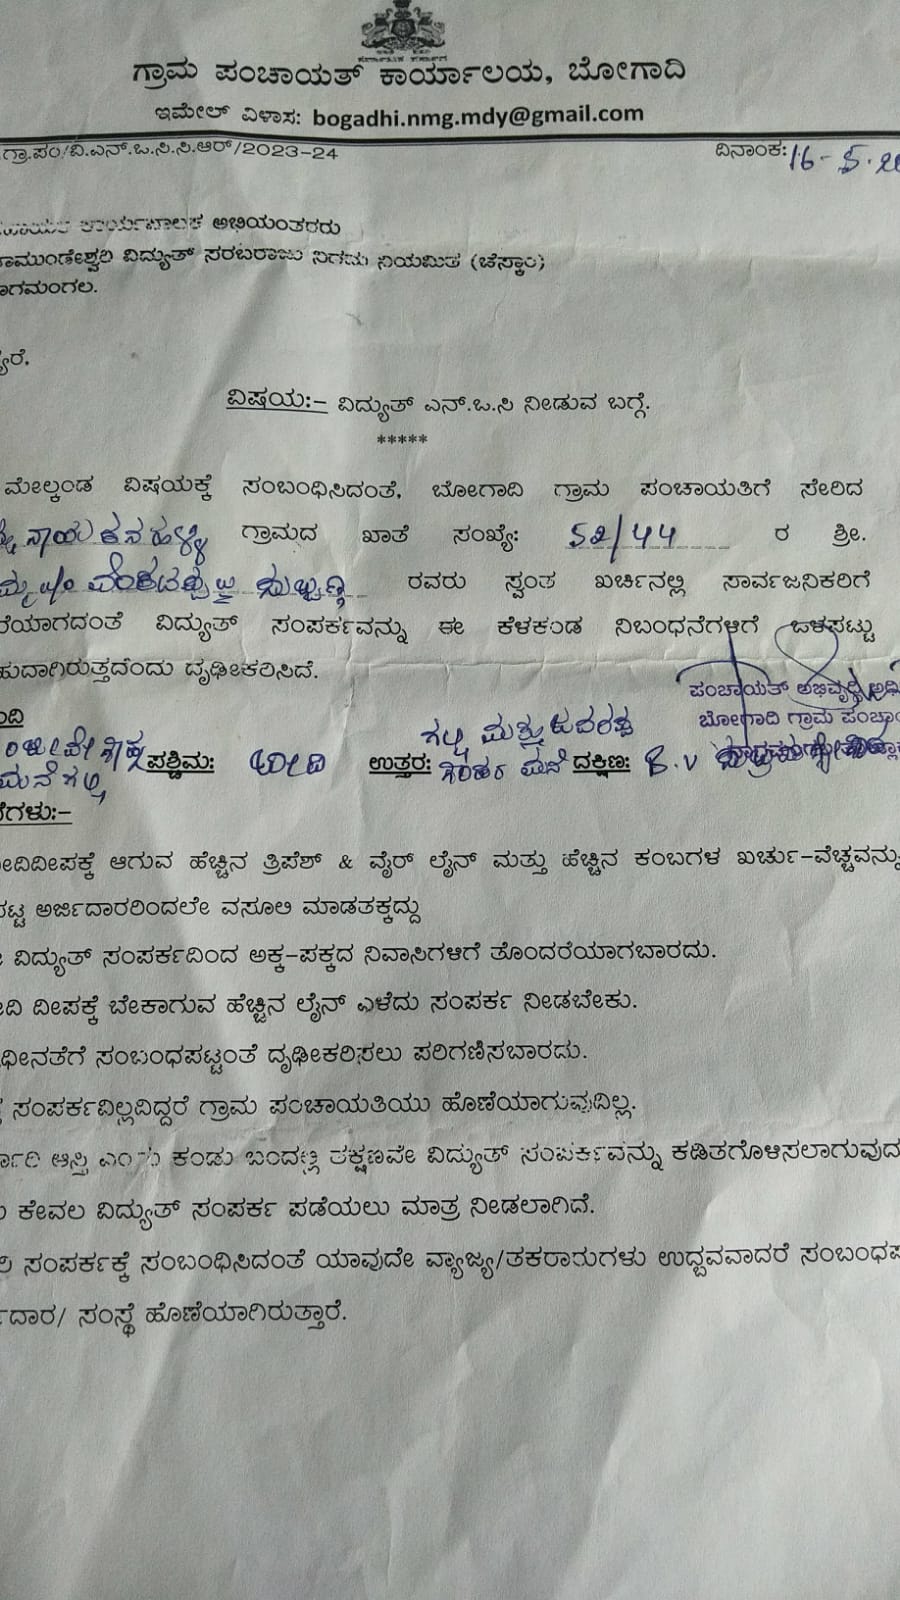 ಗ್ರಾಮ ಪಂಚಾಯತ್ ಕಾರ್ಯಾಲಯ, ಬೋಗಾದಿ
ಇಮೇಲ್ ವಿಳಾಸ: bogadhi.nmg.mdy@gmail.com
ಗ್ರಾ.ಪಂ/ವಿ.ಎನ್.ಒ.ಸಿ.ಸಿ.ಆರ್/2023-24 ದಿನಾಂಕ: 16-5-20
ಅಭಿಯಂತರರು
ಚಾಮುಂಡೇಶ್ವರಿ ವಿದ್ಯುತ್ ಸರಬರಾಜು ನಿಗಮ ನಿಯಮಿತ (ಚೆಸ್ಕಾಂ)
ಾಗಮಂಗಲ.
್ಯರೆ.
ವಿಷಯ:- ವಿದ್ಯುತ್ ಎನ್.ಒ.ಸಿ ನೀಡುವ ಬಗ್ಗೆ.
*****
ಮೇಲ್ಕಂಡ ವಿಷಯಕ್ಕೆ ಸಂಬಂಧಿಸಿದಂತೆ, ಬೋಗಾದಿ ಗ್ರಾಮ ಪಂಚಾಯತಿಗೆ ಸೇರಿದ
ನಾಯಕನಹಳ್ಳಿ ಗ್ರಾಮದ ಖಾತೆ ಸಂಖ್ಯೆ: 52/44 ರ ಶ್ರೀ.
ರವರು ಸ್ವಂತ ಖರ್ಚಿನಲ್ಲಿ ಸಾರ್ವಜನಿಕರಿಗೆ
ರೆಯಾಗದಂತೆ ವಿದ್ಯುತ್ ಸಂಪರ್ಕವನ್ನು ಈ ಕೆಳಕಂಡ ನಿಬಂಧನೆಗಳಿಗೆ ಒಳಪಟ್ಟು
ಹುದಾಗಿರುತ್ತದೆಂದು ದೃಢೀಕರಿಸಿದೆ.
ಪಂಚಾಯತ್ ಅಭಿವೃದ್ಧಿ ಅಧಿ
ಬೋಗಾದಿ ಗ್ರಾಮ ಪಂಚಾ
ಂದಿ
ಮನೆ ಗಲ್ಲಿ ಪಶ್ಚಿಮ: ಬೀದಿ ಉತ್ತರ: ಗಲ್ಲಿ ಮತ್ತು ಮನೆ ದಕ್ಷಿಣ: B.V
ನೆಗಳು:-
ೀದಿದೀಪಕ್ಕೆ ಆಗುವ ಹೆಚ್ಚಿನ ತ್ರಿಪೆಶ್ & ವೈರ್ ಲೈನ್ ಮತ್ತು ಹೆಚ್ಚಿನ ಕಂಬಗಳ ಖರ್ಚು-ವೆಚ್ಚವನ್ನು
ಪಟ್ಟ ಅರ್ಜಿದಾರರಿಂದಲೇ ವಸೂಲಿ ಮಾಡತಕ್ಕದ್ದು
ವಿದ್ಯುತ್ ಸಂಪರ್ಕದಿಂದ ಅಕ್ಕ-ಪಕ್ಕದ ನಿವಾಸಿಗಳಿಗೆ ತೊಂದರೆಯಾಗಬಾರದು.
ೀದಿ ದೀಪಕ್ಕೆ ಬೇಕಾಗುವ ಹೆಚ್ಚಿನ ಲೈನ್ ಎಳೆದು ಸಂಪರ್ಕ ನೀಡಬೇಕು.
ಧೀನತೆಗೆ ಸಂಬಂಧಪಟ್ಟಂತೆ ದೃಢೀಕರಿಸಲು ಪರಿಗಣಿಸಬಾರದು.
ಸಂಪರ್ಕವಿಲ್ಲವಿದ್ದರೆ ಗ್ರಾಮ ಪಂಚಾಯತಿಯು ಹೊಣೆಯಾಗುವುದಿಲ್ಲ.
ರ್ಕಾರಿ ಆಸ್ತಿ ಎಂದು ಕಂಡು ಬಂದಲ್ಲಿ ತಕ್ಷಣವೇ ವಿದ್ಯುತ್ ಸಂಪರ್ಕವನ್ನು ಕಡಿತಗೊಳಿಸಲಾಗುವುದ
ಕೇವಲ ವಿದ್ಯುತ್ ಸಂಪರ್ಕ ಪಡೆಯಲು ಮಾತ್ರ ನೀಡಲಾಗಿದೆ.
ರಿ ಸಂಪರ್ಕಕ್ಕೆ ಸಂಬಂಧಿಸಿದಂತೆ ಯಾವುದೇ ವ್ಯಾಜ್ಯ/ತಕರಾರುಗಳು ಉದ್ಭವವಾದರೆ ಸಂಬಂಧಪ
ದಾರ/ ಸಂಸ್ಥೆ ಹೊಣೆಯಾಗಿರುತ್ತಾರೆ.